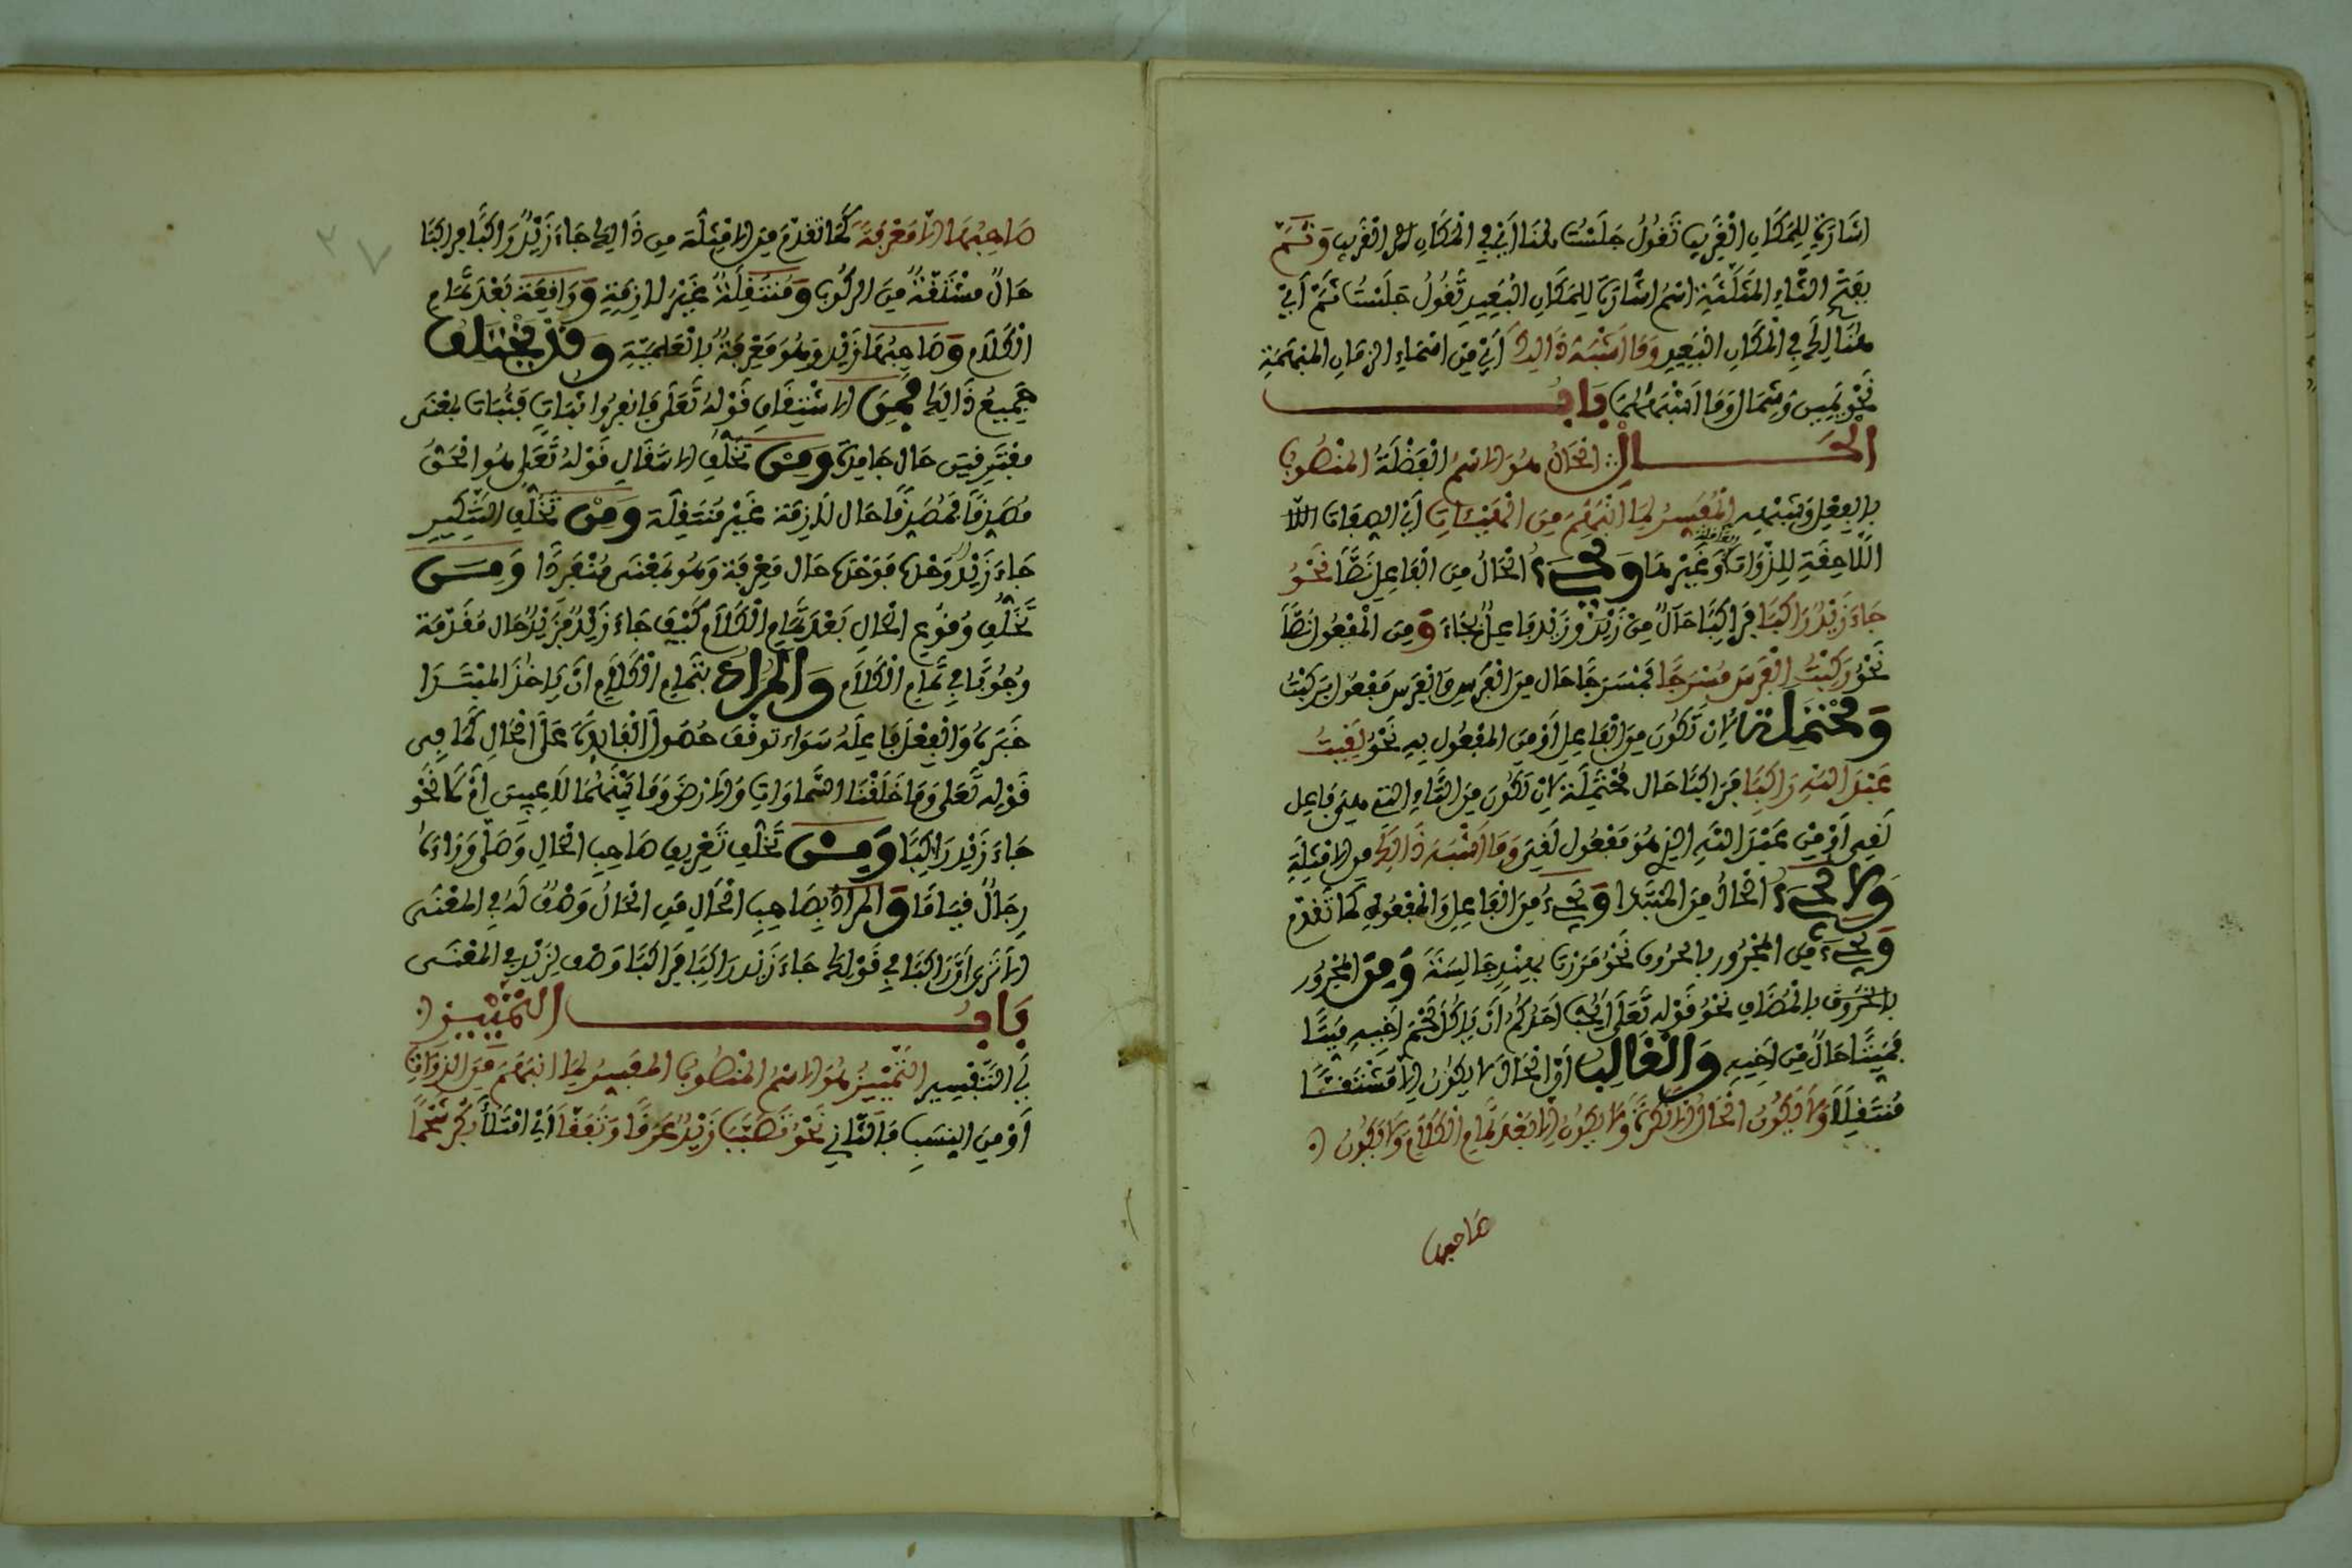 اشارة للمكان القريب تقول جلست هنا أي في المكان القريب وثَمَّ
بفتح الثاء المثلثة اسم اشارة للمكان البعيد تقول جلست ثَمَّ أي
هنالك في المكان البعيد وما اشبه ذالك أي من اسماء الزمان المبهمة
نحو يمين وشمال وما اشبههما باب
الحال الحال هو الاسم الفضلة المنصوب
بالفعل وشبهه المفسر لما انبهم من الهيئات أي الصفات اللا
اللاحقة للذوات العاقلة وغيرها ويجيء الحال من الفاعل نصا نحو
جاء زيد راكبا فراكبا حال من زيد وزيد فاعل بجاء ومن المفعول نصا
نحو ركبت الفرس مسرجا فمسرجا حال من الفرس والفرس مفعول بركبت
ومحتملة لان تكون من الفاعل أو من المفعول به نحو لقيت
عبد الله راكبا فراكبا حال محتملة لان تكون من التاء التي هي فاعل
لقي أو من عبد الله الذي هو مفعول لقي وما اشبه ذالك من الامثلة
ولا يجيء الحال من المبتدا ويجيء من الفاعل والمفعول كما تقدم
ويجيء من المجرور بالحرف نحو مررت بهند جالسة ومن المجرور
بالحروف بالمضاف نحو قوله تعلى أيحب احدكم ان ياكل لحم اخيه ميتا
فميتا حال من اخيه والغالب أن الحال لا يكون الا مشتقا
منتقلا ولا يكون الحال الا نكرة ولا يكون الا بعد تمام الكلام ولا يكون
صاحبها
صاحبها الا معرفة كما تقدم من الامثلة من ذالك جاء زيد راكبا فراكبا
حال مشتقة من الركوب ومنتقلة غير لازمة وواقعة بعد تمام
الكلام وصاحبها زيد وهو معرفة بالعلمية وقد يختلف
جميع ذالك فمن الاشتقاق قوله تعلى فانفروا ثبات فثبات بمعنى
متفرقين حال جامدة ومن تخلف الانتقال قوله تعلى هو الحق
مصدقا فمصدقا حال لازمة غير منتقلة ومن تخلف التنكير
جاء زيد وحده فوحده حال معرفة وهو بمعنى منفردا ومن
تخلف وقوع الحال بعد تمام الكلام كيف جاء زيد فزيد حال مقدمة
وجوبا في تمام الكلام والمراد بتمام الكلام ان ياخذ المبتدا
خبره والفعل فاعله سواء توقف حصول الفايدة على الحال كما في
قوله تعلى وما خلقنا السماوات والارض وما بينهما لاعبين ام لا نحو
جاء زيد راكبا ومن تخلف تعريف صاحب الحال وصلى وراءه
رجال قياما والمراد بصاحب الحال من الحال وصف له في المعنى
الا ترى ان راكبا في قولك جاء زيد راكبا فراكبا وصف لزيد في المعنى
باب التمييز
أي التفسير التمييز هو الاسم المنصوب المفسر لما انبهم من الذوات
أو من النسب فالثاني نحو تصبب زيد عرقا وتفقا أي امتلأ بكر شحما
٣٧